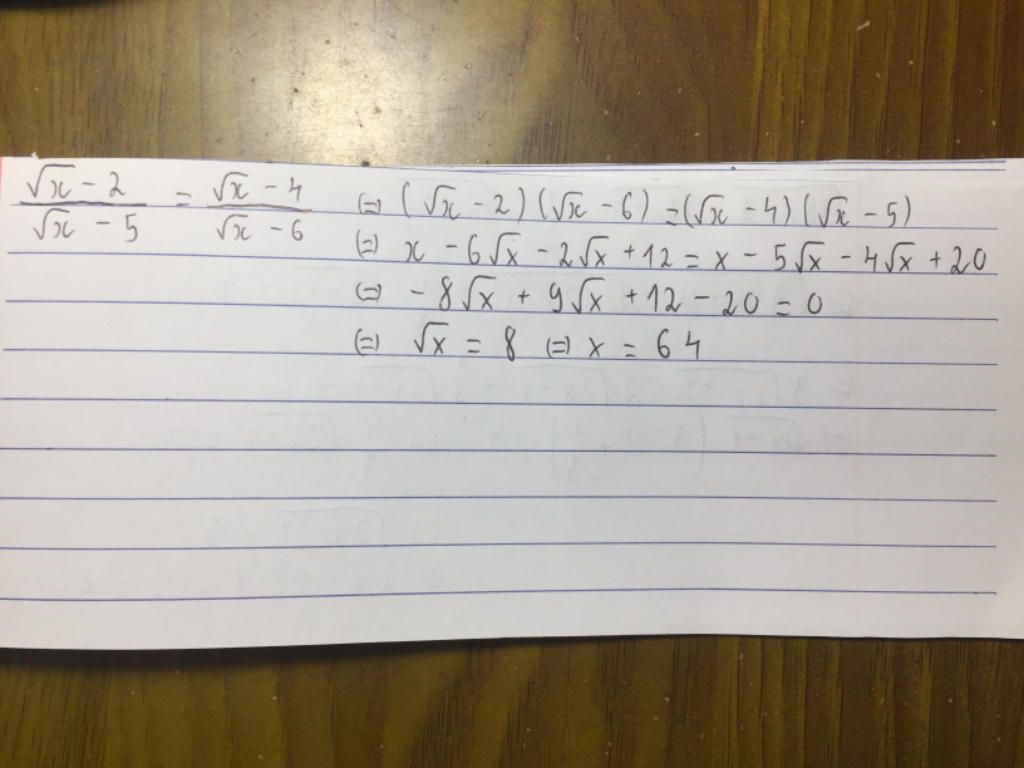 (√x - 2)/(√x - 5) = (√x - 4)/(√x - 6) (=) (√x - 2)(√x - 6) = (√x - 4)(√x - 5)
(=) x - 6√x - 2√x + 12 = x - 5√x - 4√x + 20
(=) - 8√x + 9√x + 12 - 20 = 0
(=) √x = 8 (=) x = 64